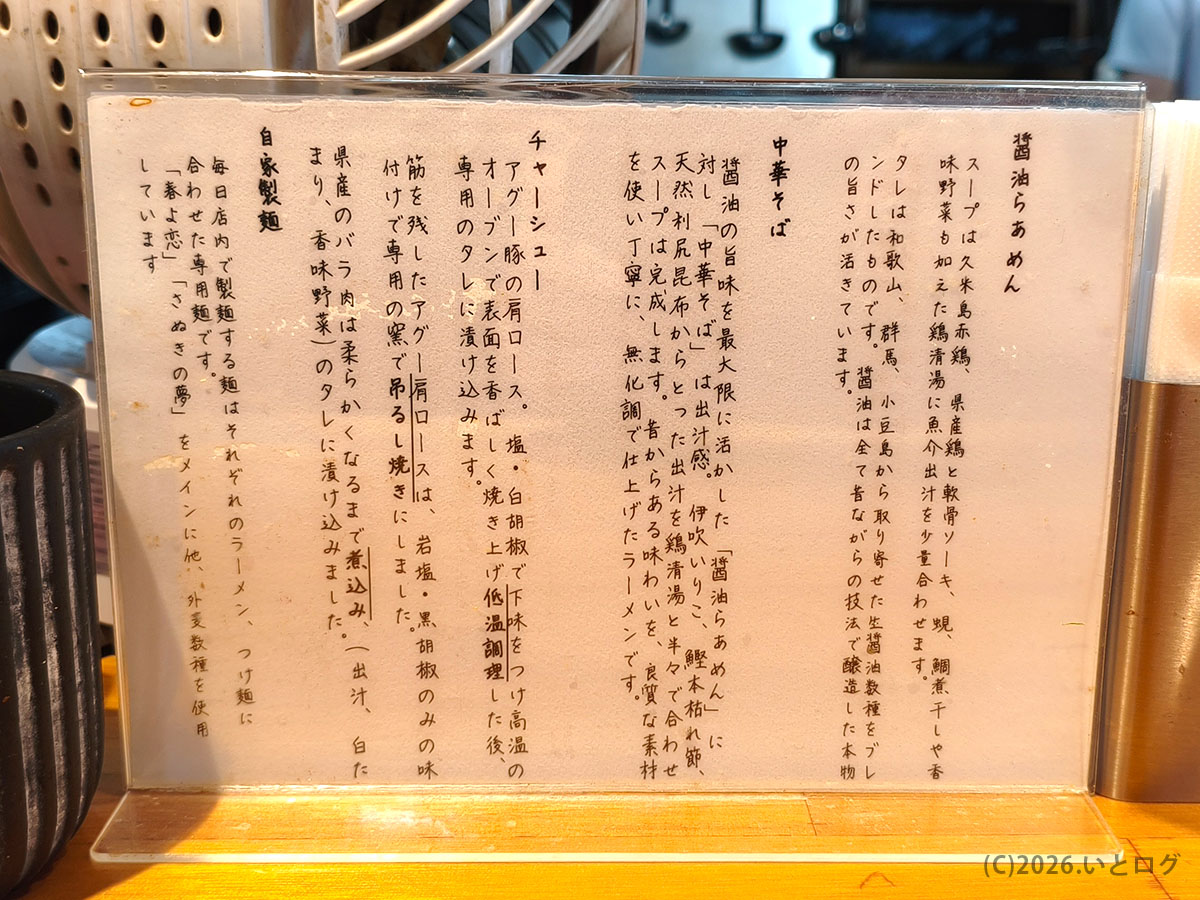 醤油らあめん
スープは久米島赤鶏、県産鶏と軟骨ソーキ、蜆、鯛煮干しや香
味野菜も加えた鶏清湯に魚介出汁を少量合わせます。
タレは和歌山、群馬、小豆島から取り寄せた生醤油数種をブレ
ンドしたものです。醤油は全て昔ながらの技法で醸造した本物
の旨さが活きています。
中華そば
醤油の旨味を最大限に活かした「醤油らあめん」に
対し「中華そば」は出汁感。伊吹いりこ、鰹本枯れ節、
天然利尻昆布からとった出汁を鶏清湯と半々で合わせ
スープは完成します。昔からある味わいを、良質な素材
を使い丁寧に、無化調で仕上げたラーメンです。
チャーシュー
アグー豚の肩ロース。塩・白胡椒で下味をつけ高温の
オーブンで表面を香ばしく焼き上げ低温調理した後、
専用のタレに漬け込みます。
筋を残したアグー肩ロースは、岩塩・黒胡椒のみの味
付けで専用の窯で吊るし焼きにしました。
県産のバラ肉は柔らかくなるまで煮込み、(出汁、白た
まり、香味野菜)のタレに漬け込みました。
自家製麺
毎日店内で製麺する麺はそれぞれのラーメン、つけ麺に
合わせた専用麺です。
「春よ恋」「さぬきの夢」をメインに他、外麦数種を使用
しています
(C)2026.いとログ